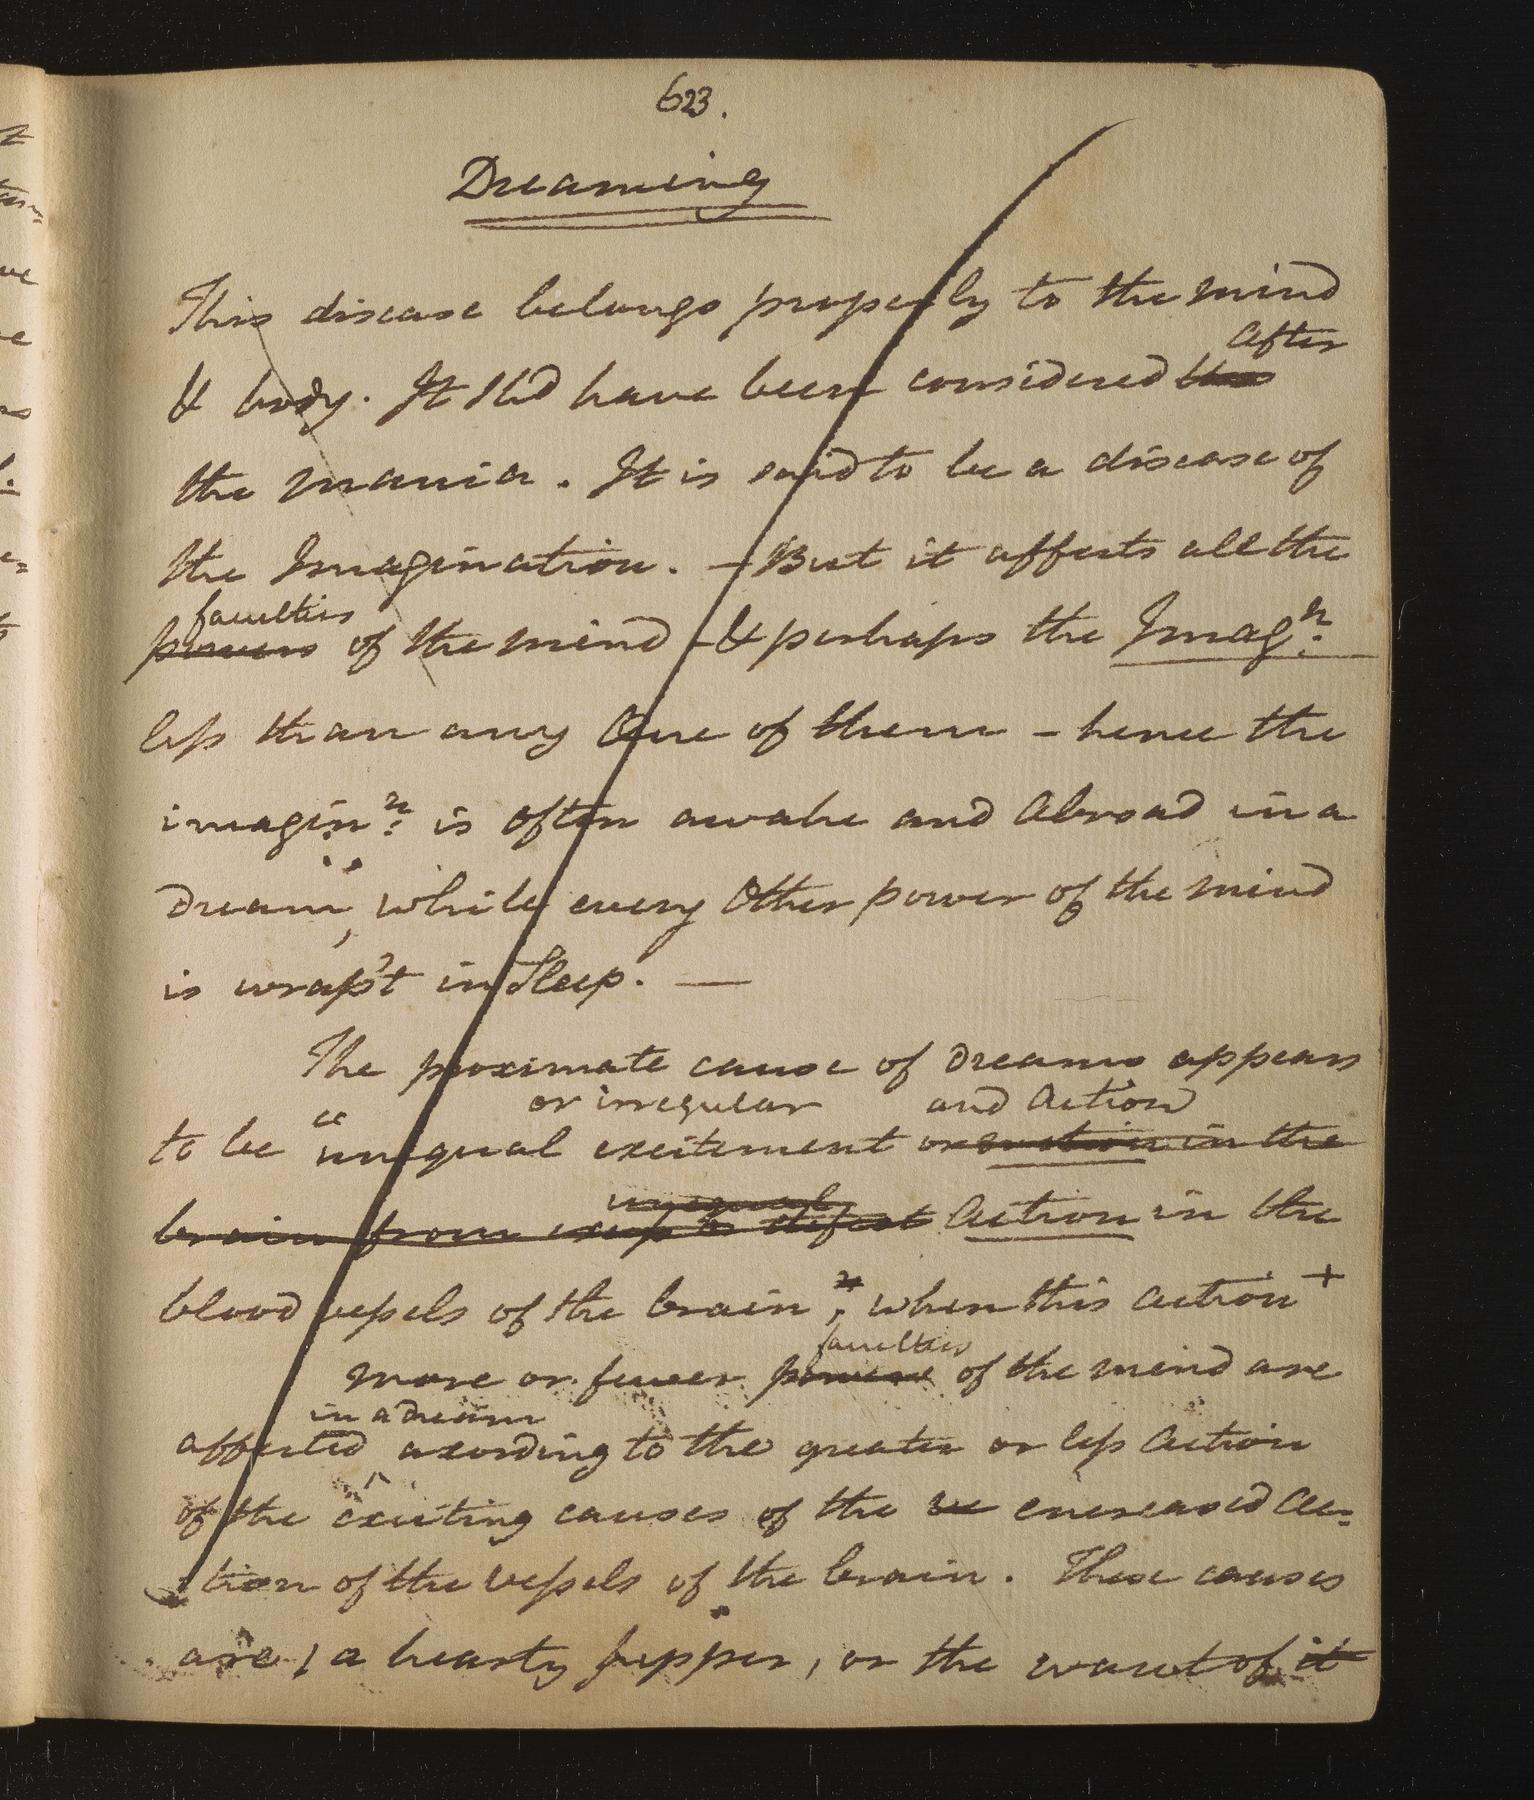 623.
Dreaming
This disease belongs properly to the mind
& body. It shd have been considered after
the mania. It is said to be a disease of
the Imagination. – But it affects all the
faculties
powers of the mind – & perhaps the Imagn.
less than any One of them – hence the
imaginn: is often awake and Abroad in a
dream, while every Other power of the mind
is wrap't in Sleep. —
The proximate cause of dreams appears
or irregular and Action
to be unequal excitement or action in the
unequal
brain from excess or defect Action in the
blood vessels of the brain, when this action +
faculties
more or fewer powers of the mind are
in a dream
affected according to the greater or less Action
of the exciting causes of the encreased Ac=
tion of the vessels of the brain. These causes
are, 1 a hearty supper, or the want of it